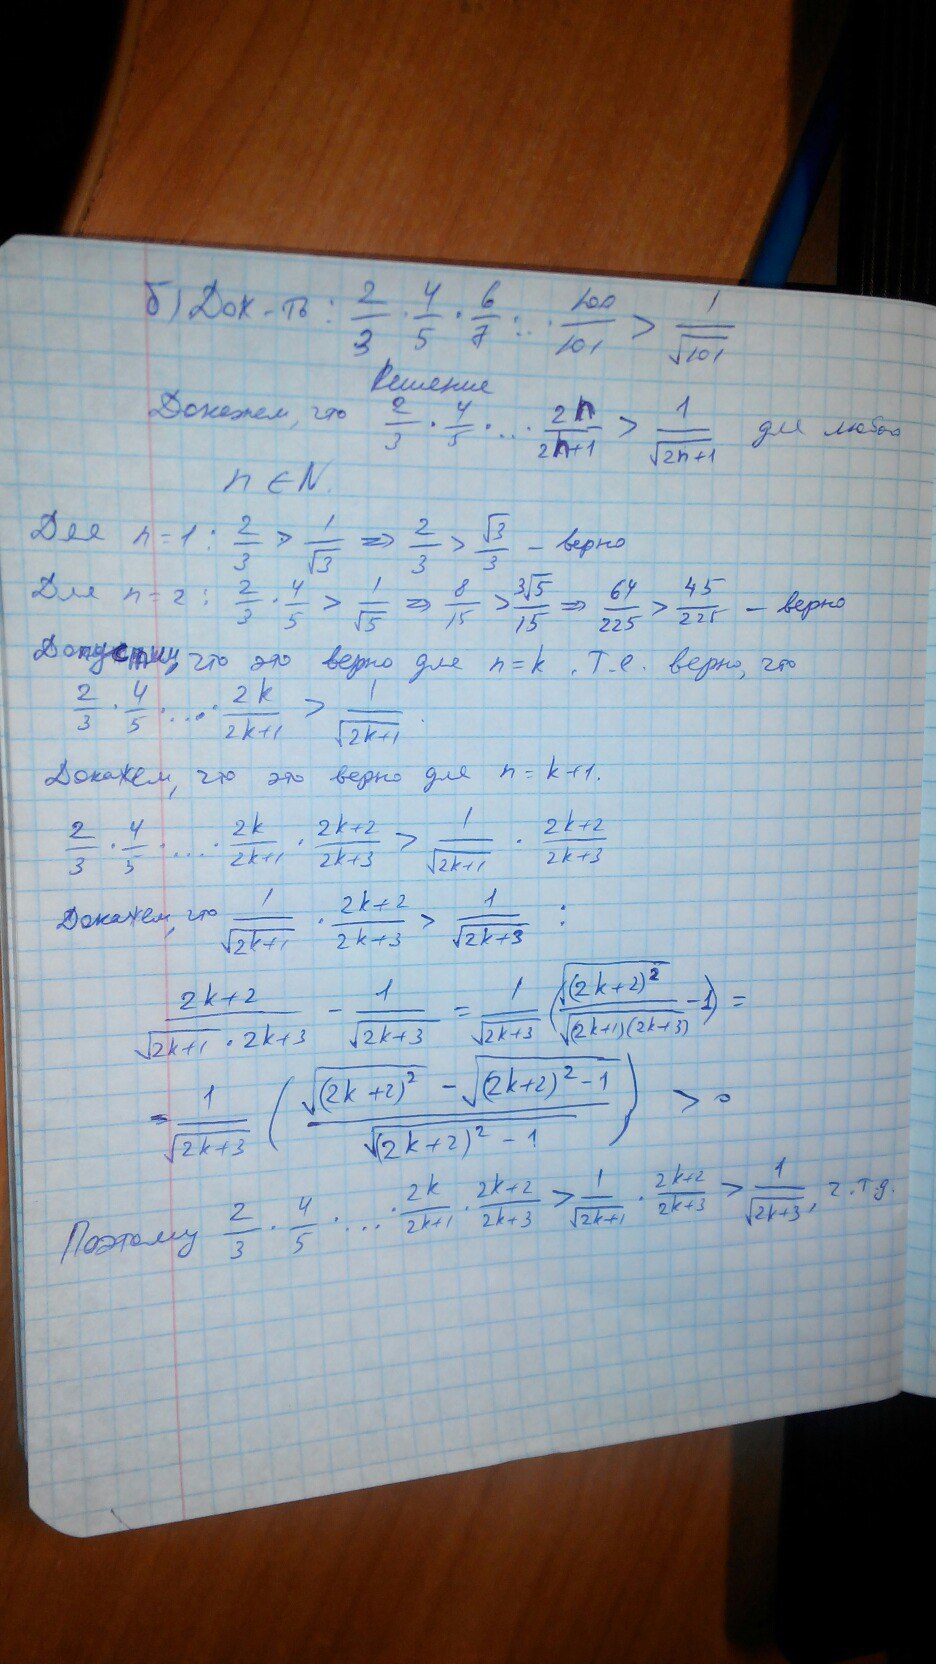 б) Док-ть: 2/3 · 4/5 · 6/7 · ... · 100/101 > 1/√101
Решение
Докажем, что 2/3 · 4/5 · ... 2n/2n+1 > 1/√2n+1 для любого
n ∈ N.
Для n=1: 2/3 > 1/√3 ⇒ 2/3 > √3/3 – верно
Для n=2: 2/3 · 4/5 > 1/√5 ⇒ 8/15 > 3√5/15 ⇒ 64/225 > 45/225 – верно
Допустим, что это верно для n=k. Т.е. верно, что
2/3 · 4/5 · ... · 2k/2k+1 > 1/√2k+1.
Докажем, что это верно для n=k+1.
2/3 · 4/5 · ... · 2k/2k+1 · 2k+2/2k+3 > 1/√2k+1 · 2k+2/2k+3
Докажем, что 1/√2k+1 · 2k+2/2k+3 > 1/√2k+3 :
2k+2/√2k+1 · 2k+3 − 1/√2k+3 = 1/√2k+3 (√(2k+2)²/√(2k+1)(2k+3) − 1) =
= 1/√2k+3 (√(2k+2)² − √(2k+2)² − 1/√(2k+2)² − 1) > 0
Поэтому 2/3 · 4/5 · ... · 2k/2k+1 · 2k+2/2k+3 > 1/√2k+1 · 2k+2/2k+3 > 1/√2k+3, ч.т.д.